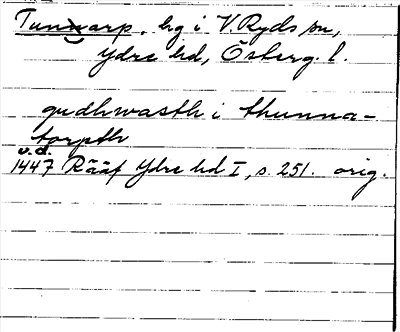 Tunnarp, hg i V. Ryds sn,
Ydre hd, Österg. l.
gudhwasth i thunna-
torpth
u.d.
1447 Rääf Ydre hd I, s. 251. orig.